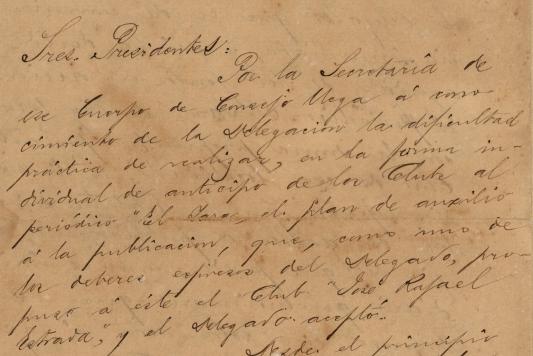 Sres. Presidentes:
Por la Secretaría de
ese Cuerpo de Consejo llega á cono-
cimiento de la Delegacion la dificultad
práctica de realizar, en la forma in-
dividual de anticipo de los Clubs al
periódico "El
el plan de auxilio
á la publicacion, que, como uno de
los deberes expresos del Delegado, pro-
puso á éste el Club "José Rafael
Estrada", y el Delegado aceptó.
Desde el principio